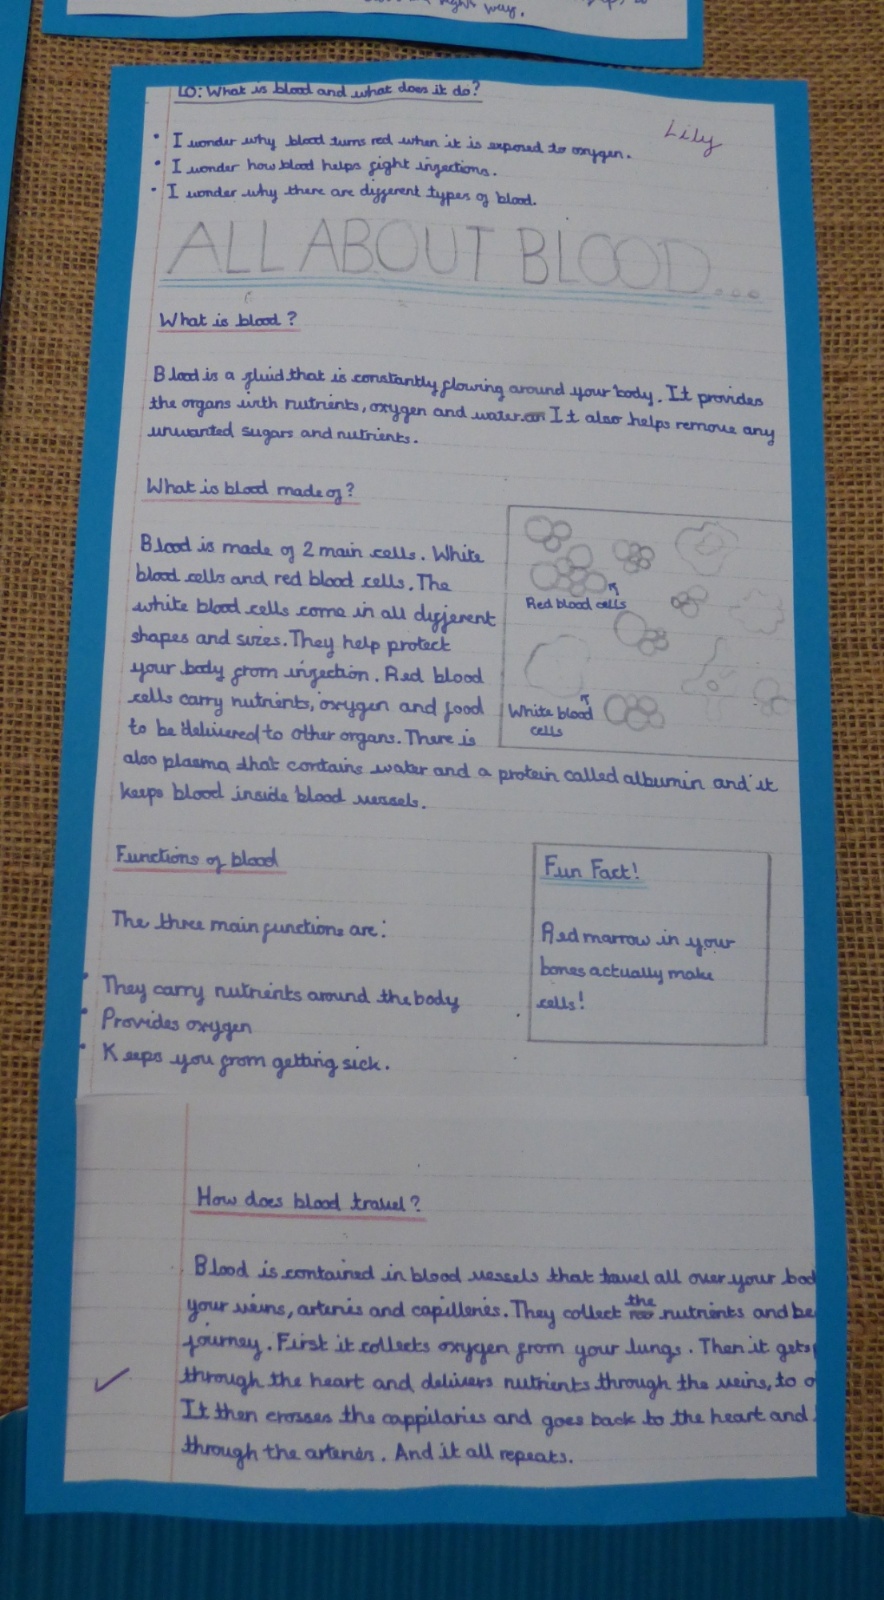 right way.
LO: What is blood and what does it do?
Lily
• I wonder why blood turns red when it is exposed to oxygen.
• I wonder how blood helps fight infections.
• I wonder why there are different types of blood.
ALL ABOUT BLOOD...
What is blood?
Blood is a fluid that is constantly flowing around your body. It provides
the organs with nutrients, oxygen and water. It also helps remove any
unwanted sugars and nutrients.
What is blood made of?
Blood is made of 2 main cells. White
blood cells and red blood cells. The
white blood cells come in all different
shapes and sizes. They help protect
your body from infection. Red blood
cells carry nutrients, oxygen and food
to be delivered to other organs. There is
also plasma that contains water and a protein called albumin and it
keeps blood inside blood vessels.
Red blood cells
White blood
cells
Functions of blood
The three main functions are:
• They carry nutrients around the body
• Provides oxygen
• Keeps you from getting sick.
Fun Fact!
Red marrow in your
bones actually make
cells!
How does blood travel?
Blood is contained in blood vessels that travel all over your bod
your veins, arteries and capilleries. They collect the nutrients and be
journey. First it collects oxygen from your lungs. Then it gets
through the heart and delivers nutrients through the veins, to o
It then crosses the cappilaries and goes back to the heart and
through the arteries. And it all repeats.